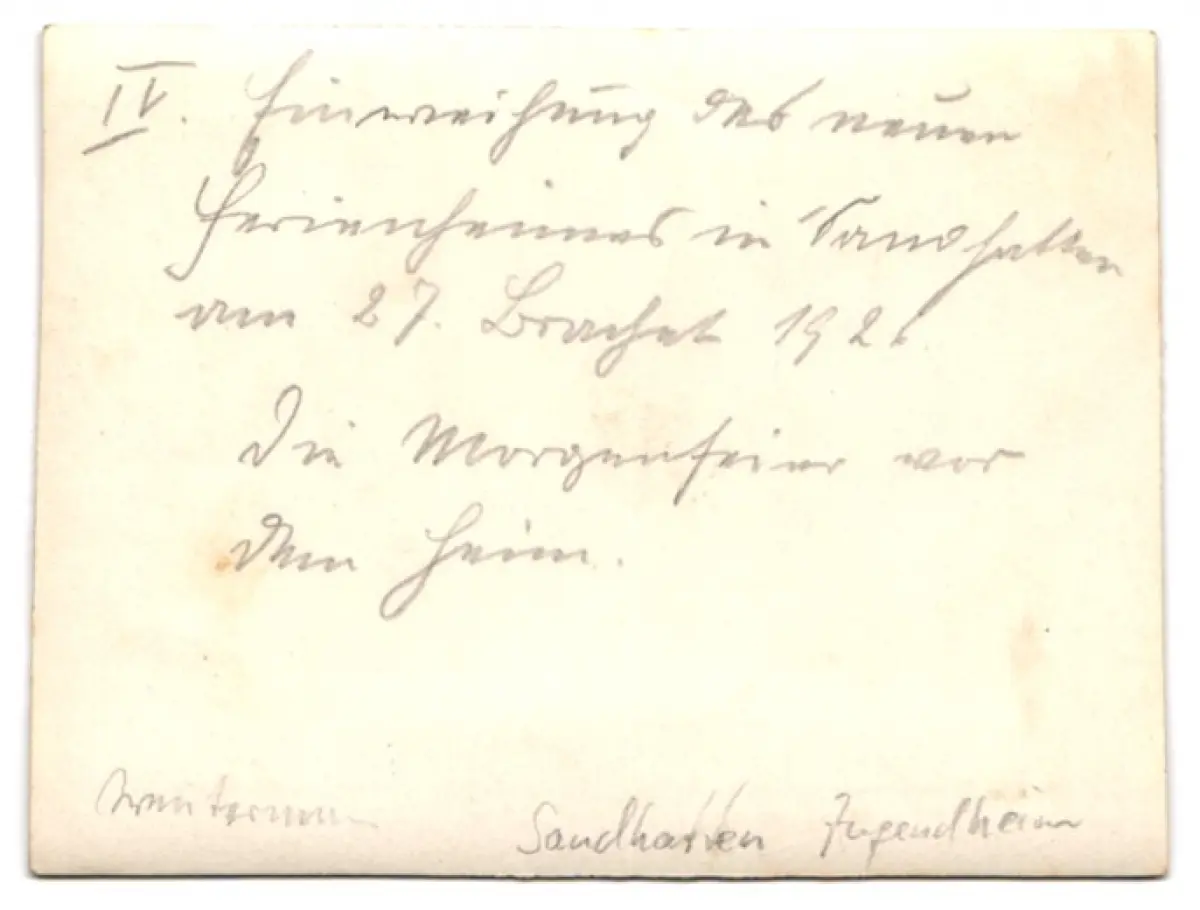 IV. Einweihung des neuen
Ferienheimes in Sandhatten
am 27. Brachet
Die Morgenfeier vor
dem Heim.
Sandhatten Jugendheim